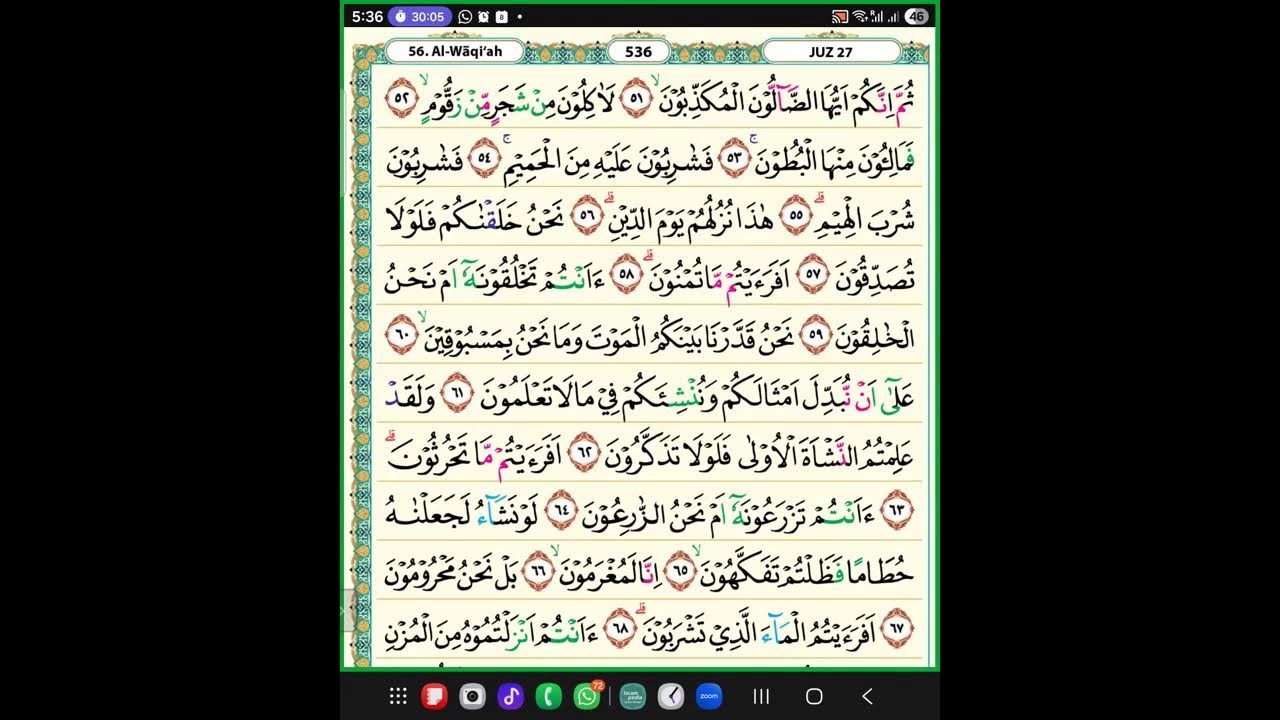 5:36 30:05 46
56. Al-Wāqi‘ah 536 JUZ 27
ثُمَّ اِنَّكُمْ اَيُّهَا الضَّاۤلُّوْنَ الْمُكَذِّبُوْنَۙ ٥١ لَاٰكِلُوْنَ مِنْ شَجَرٍ مِّنْ زَقُّوْمٍۙ ٥٢
فَمَالِـُٔوْنَ مِنْهَا الْبُطُوْنَۚ ٥٣ فَشٰرِبُوْنَ عَلَيْهِ مِنَ الْحَمِيْمِۚ ٥٤ فَشٰرِبُوْنَ
شُرْبَ الْهِيْمِۗ ٥٥ هٰذَا نُزُلُهُمْ يَوْمَ الدِّيْنِۗ ٥٦ نَحْنُ خَلَقْنٰكُمْ فَلَوْلَا
تُصَدِّقُوْنَ ٥٧ اَفَرَءَيْتُمْ مَّا تُمْنُوْنَۗ ٥٨ ءَاَنْتُمْ تَخْلُقُوْنَهٗٓ اَمْ نَحْنُ
الْخٰلِقُوْنَ ٥٩ نَحْنُ قَدَّرْنَا بَيْنَكُمُ الْمَوْتَ وَمَا نَحْنُ بِمَسْبُوْقِيْنَۙ ٦٠
عَلٰٓى اَنْ نُّبَدِّلَ اَمْثَالَكُمْ وَنُنْشِئَكُمْ فِيْ مَا لَا تَعْلَمُوْنَ ٦١ وَلَقَدْ
عَلِمْتُمُ النَّشْاَةَ الْاُوْلٰى فَلَوْلَا تَذَكَّرُوْنَ ٦٢ اَفَرَءَيْتُمْ مَّا تَحْرُثُوْنَۗ
٦٣ ءَاَنْتُمْ تَزْرَعُوْنَهٗٓ اَمْ نَحْنُ الزّٰرِعُوْنَ ٦٤ لَوْ نَشَاۤءُ لَجَعَلْنٰهُ
حُطَامًا فَظَلْتُمْ تَفَكَّهُوْنَۙ ٦٥ اِنَّا لَمُغْرَمُوْنَۙ ٦٦ بَلْ نَحْنُ مَحْرُوْمُوْنَ
٦٧ اَفَرَءَيْتُمُ الْمَاۤءَ الَّذِيْ تَشْرَبُوْنَۗ ٦٨ ءَاَنْتُمْ اَنْزَلْتُمُوْهُ مِنَ الْمُزْنِ
72 zoom